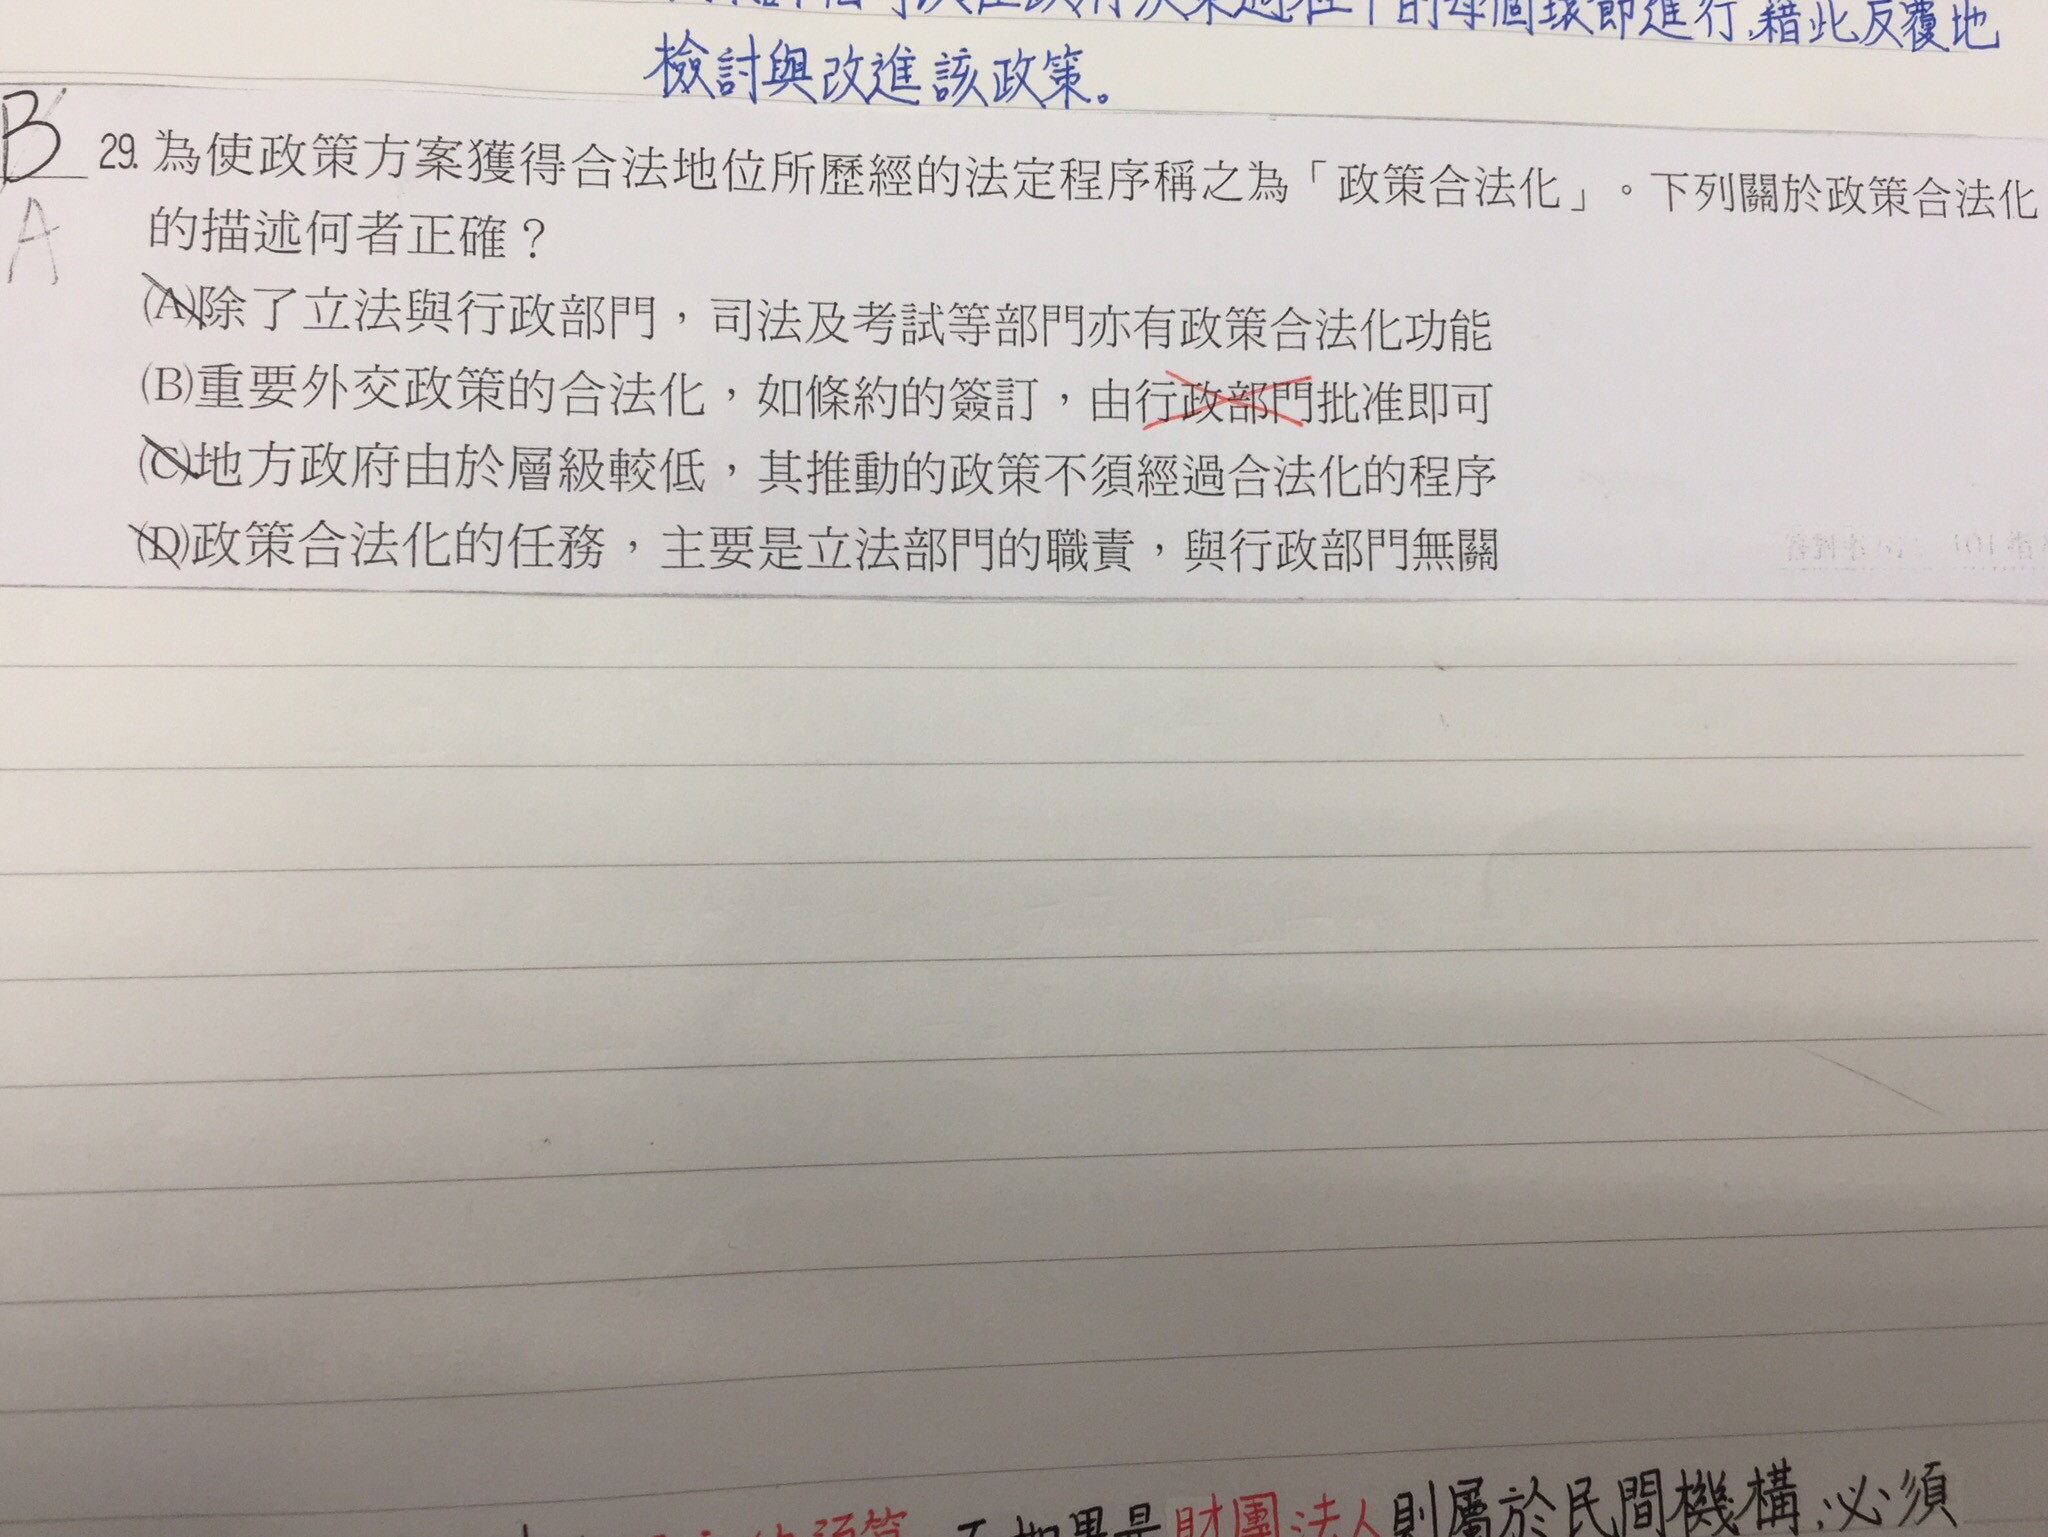 的每個環節進行,藉此反覆地
檢討與改進該政策。
B
A
29. 為使政策方案獲得合法地位所歷經的法定程序稱之為「政策合法化」。下列關於政策合法化
的描述何者正確？
(A)除了立法與行政部門，司法及考試等部門亦有政策合法化功能
(B)重要外交政策的合法化，如條約的簽訂，由行政部門批准即可
(C)地方政府由於層級較低，其推動的政策不須經過合法化的程序
(D)政策合法化的任務，主要是立法部門的職責，與行政部門無關
財團法人則屬於民間機構,必須